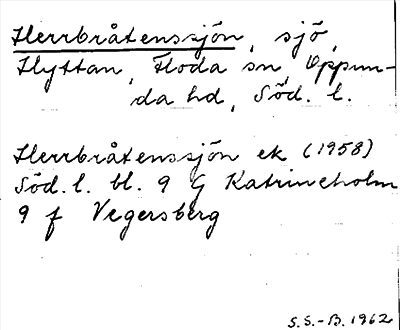 Herrbråtenssjön, sjö,
Hyttan, Floda sn, Oppun-
da hd, Söd. l.
Herrbråtenssjön ek (1958)
Söd. l. bl. 9 G Katrineholm
9 f Vegersberg
S.S.-B. 1962